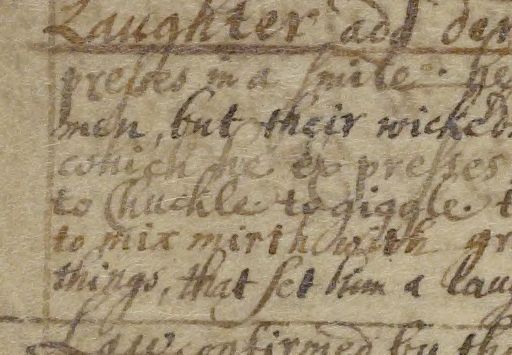 Laughter add der
presses in a smile. he
men, but their wicked
which he expresses
to Chuckle. to giggle. t
to mix mirth with gr
things, that set him a laug
Law confirmed by th